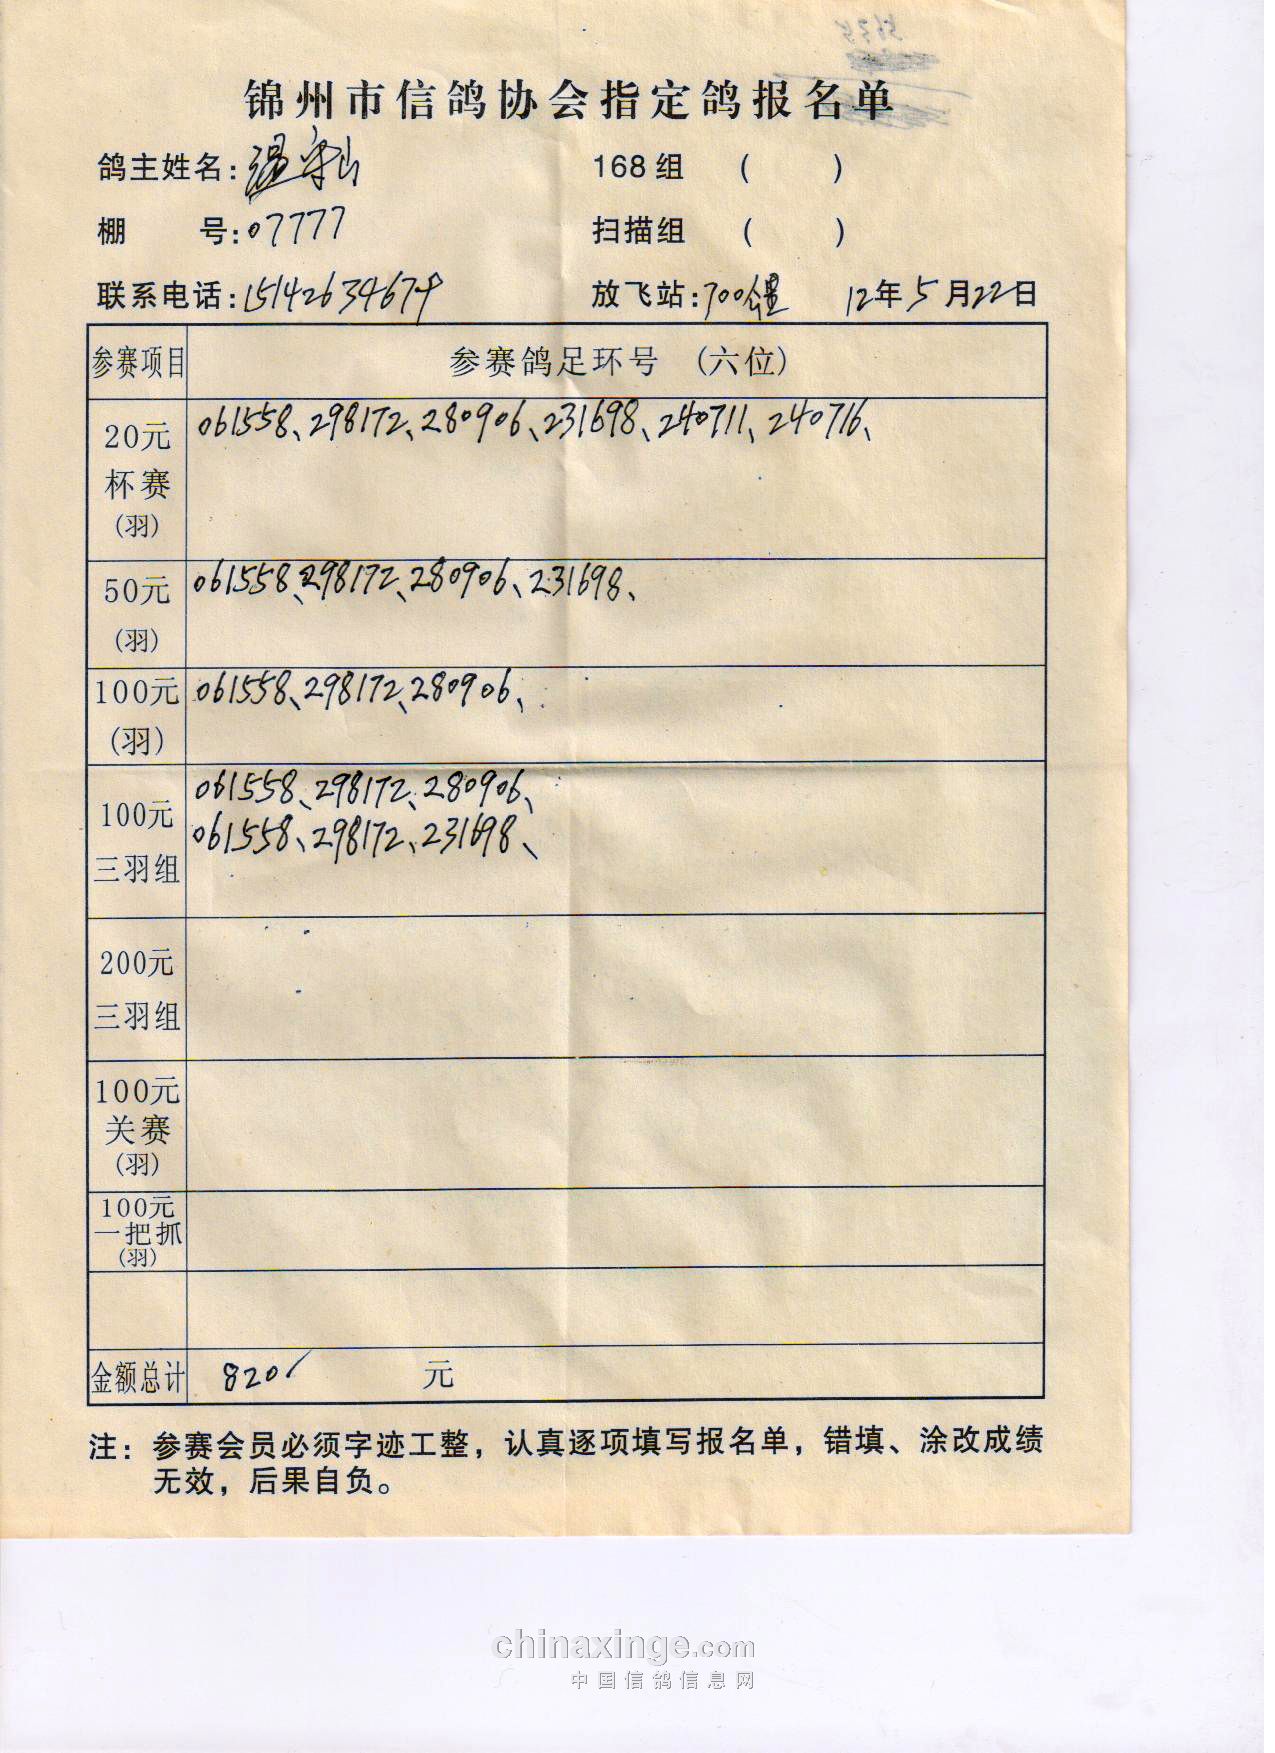 锦州市信鸽协会指定鸽报名单
鸽主姓名:温守山 168组 ( )
棚 号:07777 扫描组 ( )
联系电话:15142634679 放飞站:700公里 12年5月22日
参赛项目 参赛鸽足环号 (六位)
20元 061558、298172、280906、231698、240711、240716、
杯赛
(羽)
50元 061558、298172、280906、231698、
(羽)
100元 061558、298172、280906、
(羽)
100元 061558、298172、280906、
三羽组 061558、298172、231698、
200元
三羽组
100元
关赛
(羽)
100元
一把抓
(羽)
金额总计 820 元
注: 参赛会员必须字迹工整,认真逐项填写报名单,错填、涂改成绩
无效,后果自负。
chinaxinge.com
中国信鸽信息网